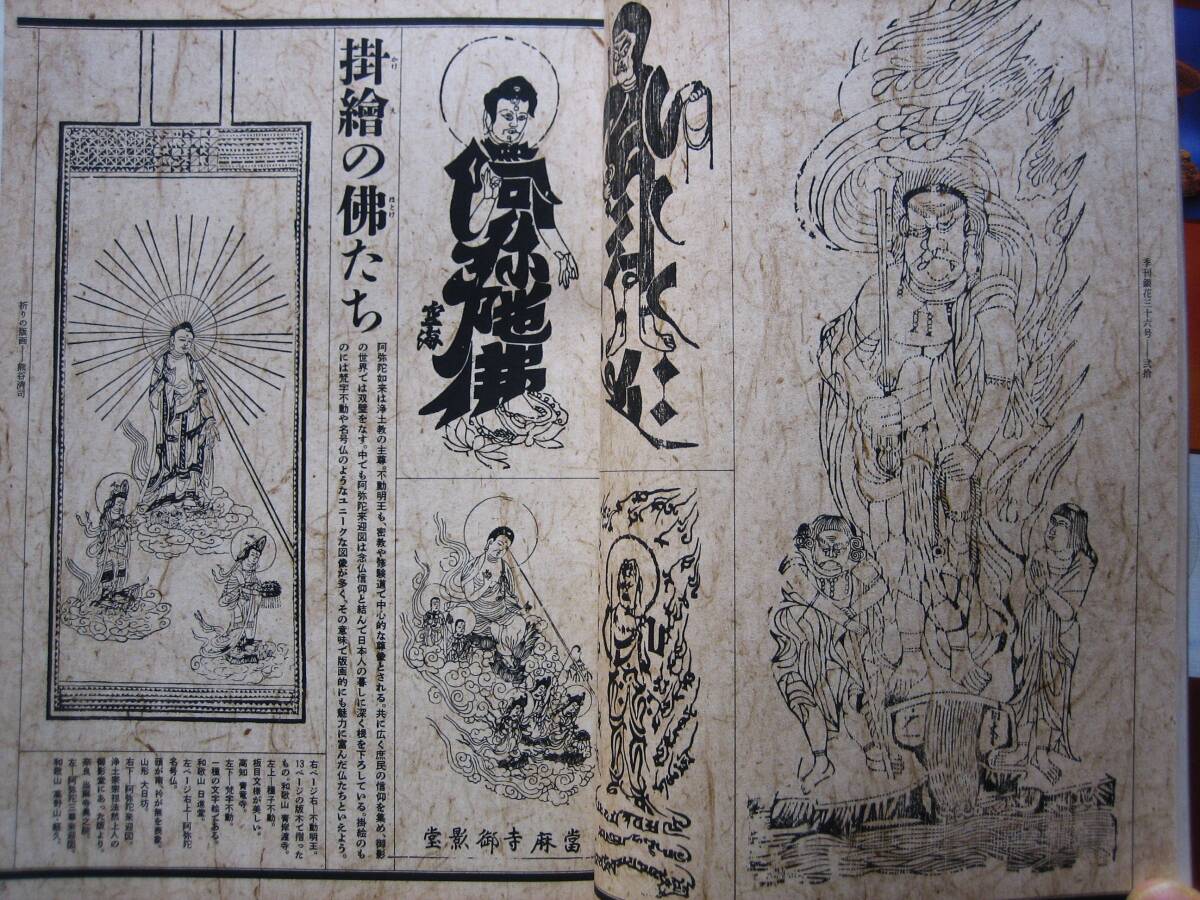 季刊銀花三十六号——弐拾
阿弥陀佛
空海
當麻寺御影堂
掛繪の佛たち
かけ え ほとけ
阿弥陀如来は浄土教の主尊。不動明王も、密教や修験道で中心的な尊像とされる。共に広く庶民の信仰を集め、御影
の世界では双璧をなす。中でも阿弥陀来迎図は念仏信仰と結んで日本人の暮しに深く根を下ろしている。掛絵のも
のには梵字不動や名号仏のようなユニークな図像が多く、その意味で版画的にも魅力に富んだ仏たちといえよう。
右ページ右―不動明王。
13ページの版木で摺った
もの。和歌山 青岸渡寺。
左上―種子不動。
板目文様が美しい。
高知 青竜寺。
左下―梵字不動。
一種の文字絵である。
和歌山 日進堂。
左ページ右上―阿弥陀
名号仏。
頭が南、衿が無を表象。
山形 大日坊。
右下―阿弥陀来迎図。
浄土宗宗祖法然上人の
御影堂にあった版より。
奈良 当麻寺奥之院。
左―阿弥陀三尊来迎図。
和歌山 高野山
祈りの版画——熊谷清司